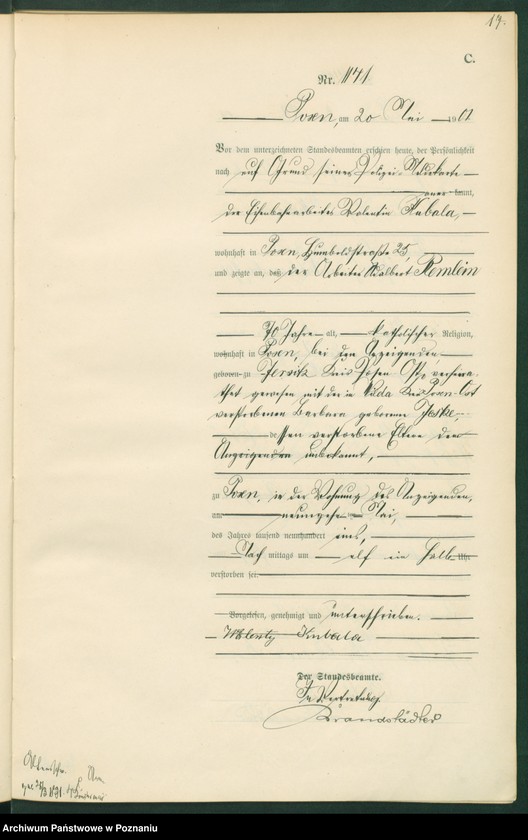 17.
C.
Nr. 1171
Posen, am 20 Mai 1901
Vor dem unterzeichneten Standesbeamten erschien heute, der Persönlichkeit
nach auf Grund seiner Polizei-
kannt,
der Eisenbahnarbeiter Valentin Kubala,
wohnhaft in Posen, Humboldstraße 25,
und zeigte an, daß der Arbeiter Adalbert Remlein
70 Jahre alt, katholischer Religion,
wohnhaft in Posen, bei dem Anzeigenden,
geboren zu Jersitz Kreis Posen Ost, verheira-
thet gewesen mit der in Kreis Posen-Ost
verstorbenen Barbara geborene Jeske,
dessen verstorbene Eltern dem
Anzeigenden unbekannt,
zu Posen, in der Wohnung des Anzeigenden,
am neunzehn Mai,
des Jahres tausend neunhundert eins,
Nach mittags um elf ein halb Uhr
verstorben sei.
Vorgelesen, genehmigt und unterschrieben.
Walenty Kubala
Der Standesbeamte.
In Vertretung.
Brandstädter
Archiwum Państwowe w Poznaniu